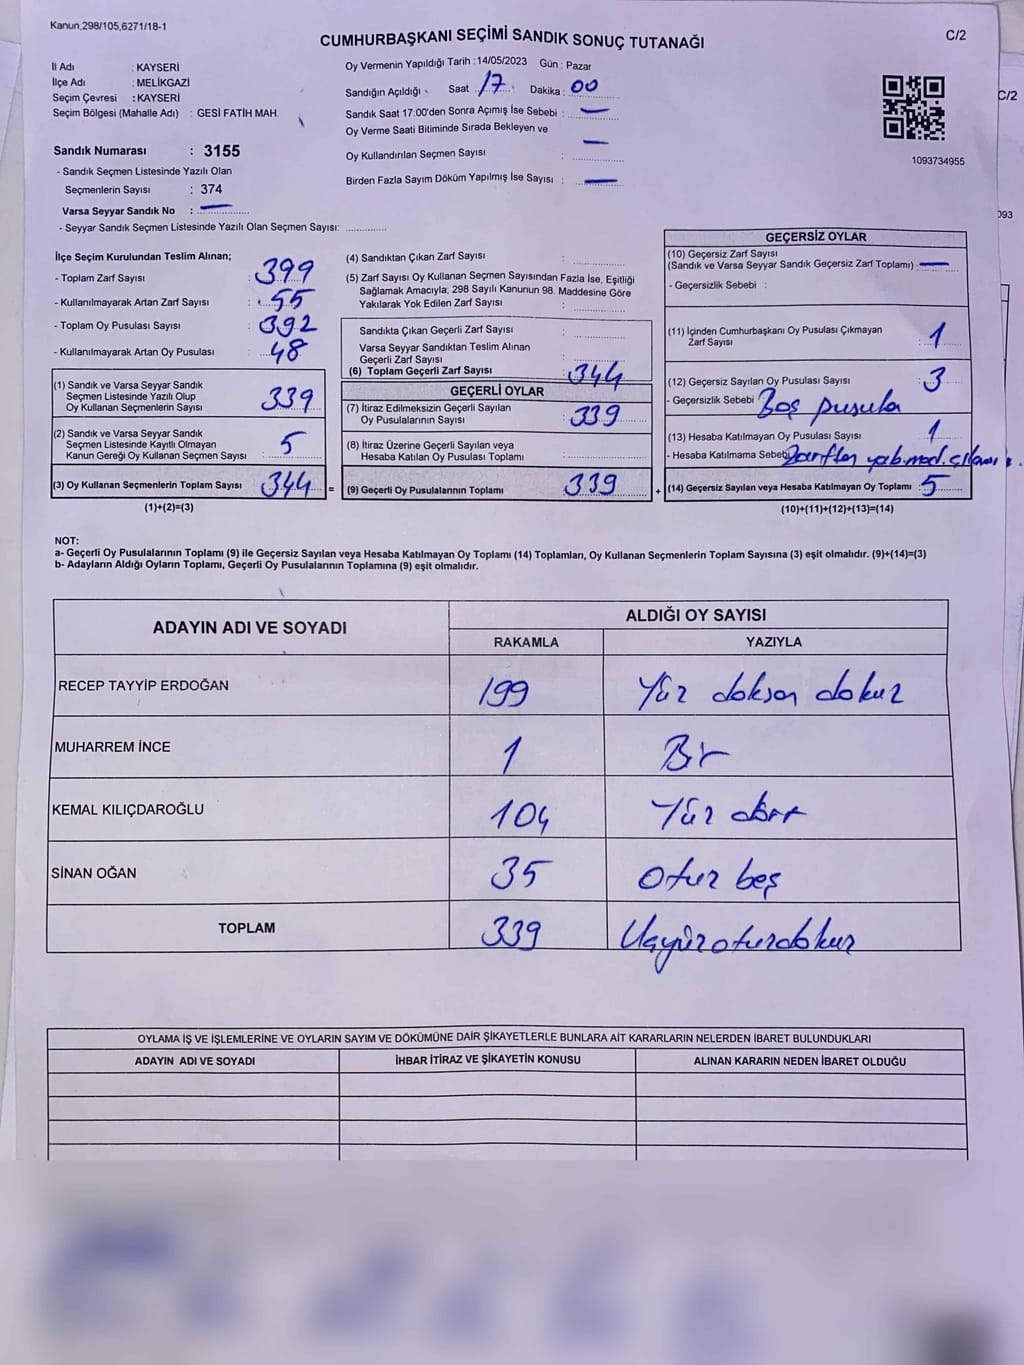 Kanun,298/105,6271/18-1
C/2
CUMHURBAŞKANI SEÇİMİ SANDIK SONUÇ TUTANAĞI
İl Adı : KAYSERİ
İlçe Adı : MELİKGAZİ
Seçim Çevresi : KAYSERİ
Seçim Bölgesi (Mahalle Adı) : GESİ FATİH MAH.
Sandık Numarası : 3155
- Sandık Seçmen Listesinde Yazılı Olan
Seçmenlerin Sayısı : 374
Varsa Seyyar Sandık No : —
- Seyyar Sandık Seçmen Listesinde Yazılı Olan Seçmen Sayısı: ............
Oy Vermenin Yapıldığı Tarih : 14/05/2023 Gün : Pazar
Sandığın Açıldığı Saat : 17 Dakika : 00
Sandık Saat 17:00'den Sonra Açımış İse Sebebi : —
Oy Verme Saati Bitiminde Sırada Bekleyen ve —
Oy Kullandırılan Seçmen Sayısı :
Birden Fazla Sayım Döküm Yapılmış İse Sayısı : —
1093734955
C/2
093
İlçe Seçim Kurulundan Teslim Alınan;
- Toplam Zarf Sayısı : 399
- Kullanılmayarak Artan Zarf Sayısı : 55
- Toplam Oy Pusulası Sayısı : 392
- Kullanılmayarak Artan Oy Pusulası : 48
(1) Sandık ve Varsa Seyyar Sandık
Seçmen Listesinde Yazılı Olup
Oy Kullanan Seçmenlerin Sayısı : 339
(2) Sandık ve Varsa Seyyar Sandık
Seçmen Listesinde Kayıtlı Olmayan
Kanun Gereği Oy Kullanan Seçmen Sayısı : 5
(3) Oy Kullanan Seçmenlerin Toplam Sayısı : 344 =
(1)+(2)=(3)
(4) Sandıktan Çıkan Zarf Sayısı :
(5) Zarf Sayısı Oy Kullanan Seçmen Sayısından Fazla İse, Eşitliği
Sağlamak Amacıyla; 298 Sayılı Kanunun 98. Maddesine Göre
Yakılarak Yok Edilen Zarf Sayısı :
Sandıkta Çıkan Geçerli Zarf Sayısı :
Varsa Seyyar Sandıktan Teslim Alınan
Geçerli Zarf Sayısı :
(6) Toplam Geçerli Zarf Sayısı : 344
GEÇERLİ OYLAR
(7) İtiraz Edilmeksizin Geçerli Sayılan
Oy Pusulalarının Sayısı : 339
(8) İtiraz Üzerine Geçerli Sayılan veya
Hesaba Katılan Oy Pusulası Toplamı :
(9) Geçerli Oy Pusulalarının Toplamı : 339 +
GEÇERSİZ OYLAR
(10) Geçersiz Zarf Sayısı
(Sandık ve Varsa Seyyar Sandık Geçersiz Zarf Toplamı) : —
- Geçersizlik Sebebi :
(11) İçinden Cumhurbaşkanı Oy Pusulası Çıkmayan
Zarf Sayısı : 1
(12) Geçersiz Sayılan Oy Pusulası Sayısı : 3
- Geçersizlik Sebebi Boş pusula
(13) Hesaba Katılmayan Oy Pusulası Sayısı : 1
- Hesaba Katılmama Sebebi
(14) Geçersiz Sayılan veya Hesaba Katılmayan Oy Toplamı : 5
(10)+(11)+(12)+(13)=(14)
NOT:
a- Geçerli Oy Pusulalarının Toplamı (9) ile Geçersiz Sayılan veya Hesaba Katılmayan Oy Toplamı (14) Toplamları, Oy Kullanan Seçmenlerin Toplam Sayısına (3) eşit olmalıdır. (9)+(14)=(3)
b- Adayların Aldığı Oyların Toplamı, Geçerli Oy Pusulalarının Toplamına (9) eşit olmalıdır.
ADAYIN ADI VE SOYADI ALDIĞI OY SAYISI
RAKAMLA YAZIYLA
RECEP TAYYİP ERDOĞAN 199 Yüz doksan dokuz
MUHARREM İNCE 1 Bir
KEMAL KILIÇDAROĞLU 104 Yüz dört
SİNAN OĞAN 35 otuz beş
TOPLAM 339 Üçyüzotuzdokuz
OYLAMA İŞ VE İŞLEMLERİNE VE OYLARIN SAYIM VE DÖKÜMÜNE DAİR ŞİKAYETLERLE BUNLARA AİT KARARLARIN NELERDEN İBARET BULUNDUKLARI
ADAYIN ADI VE SOYADI İHBAR İTİRAZ VE ŞİKAYETİN KONUSU ALINAN KARARIN NEDEN İBARET OLDUĞU